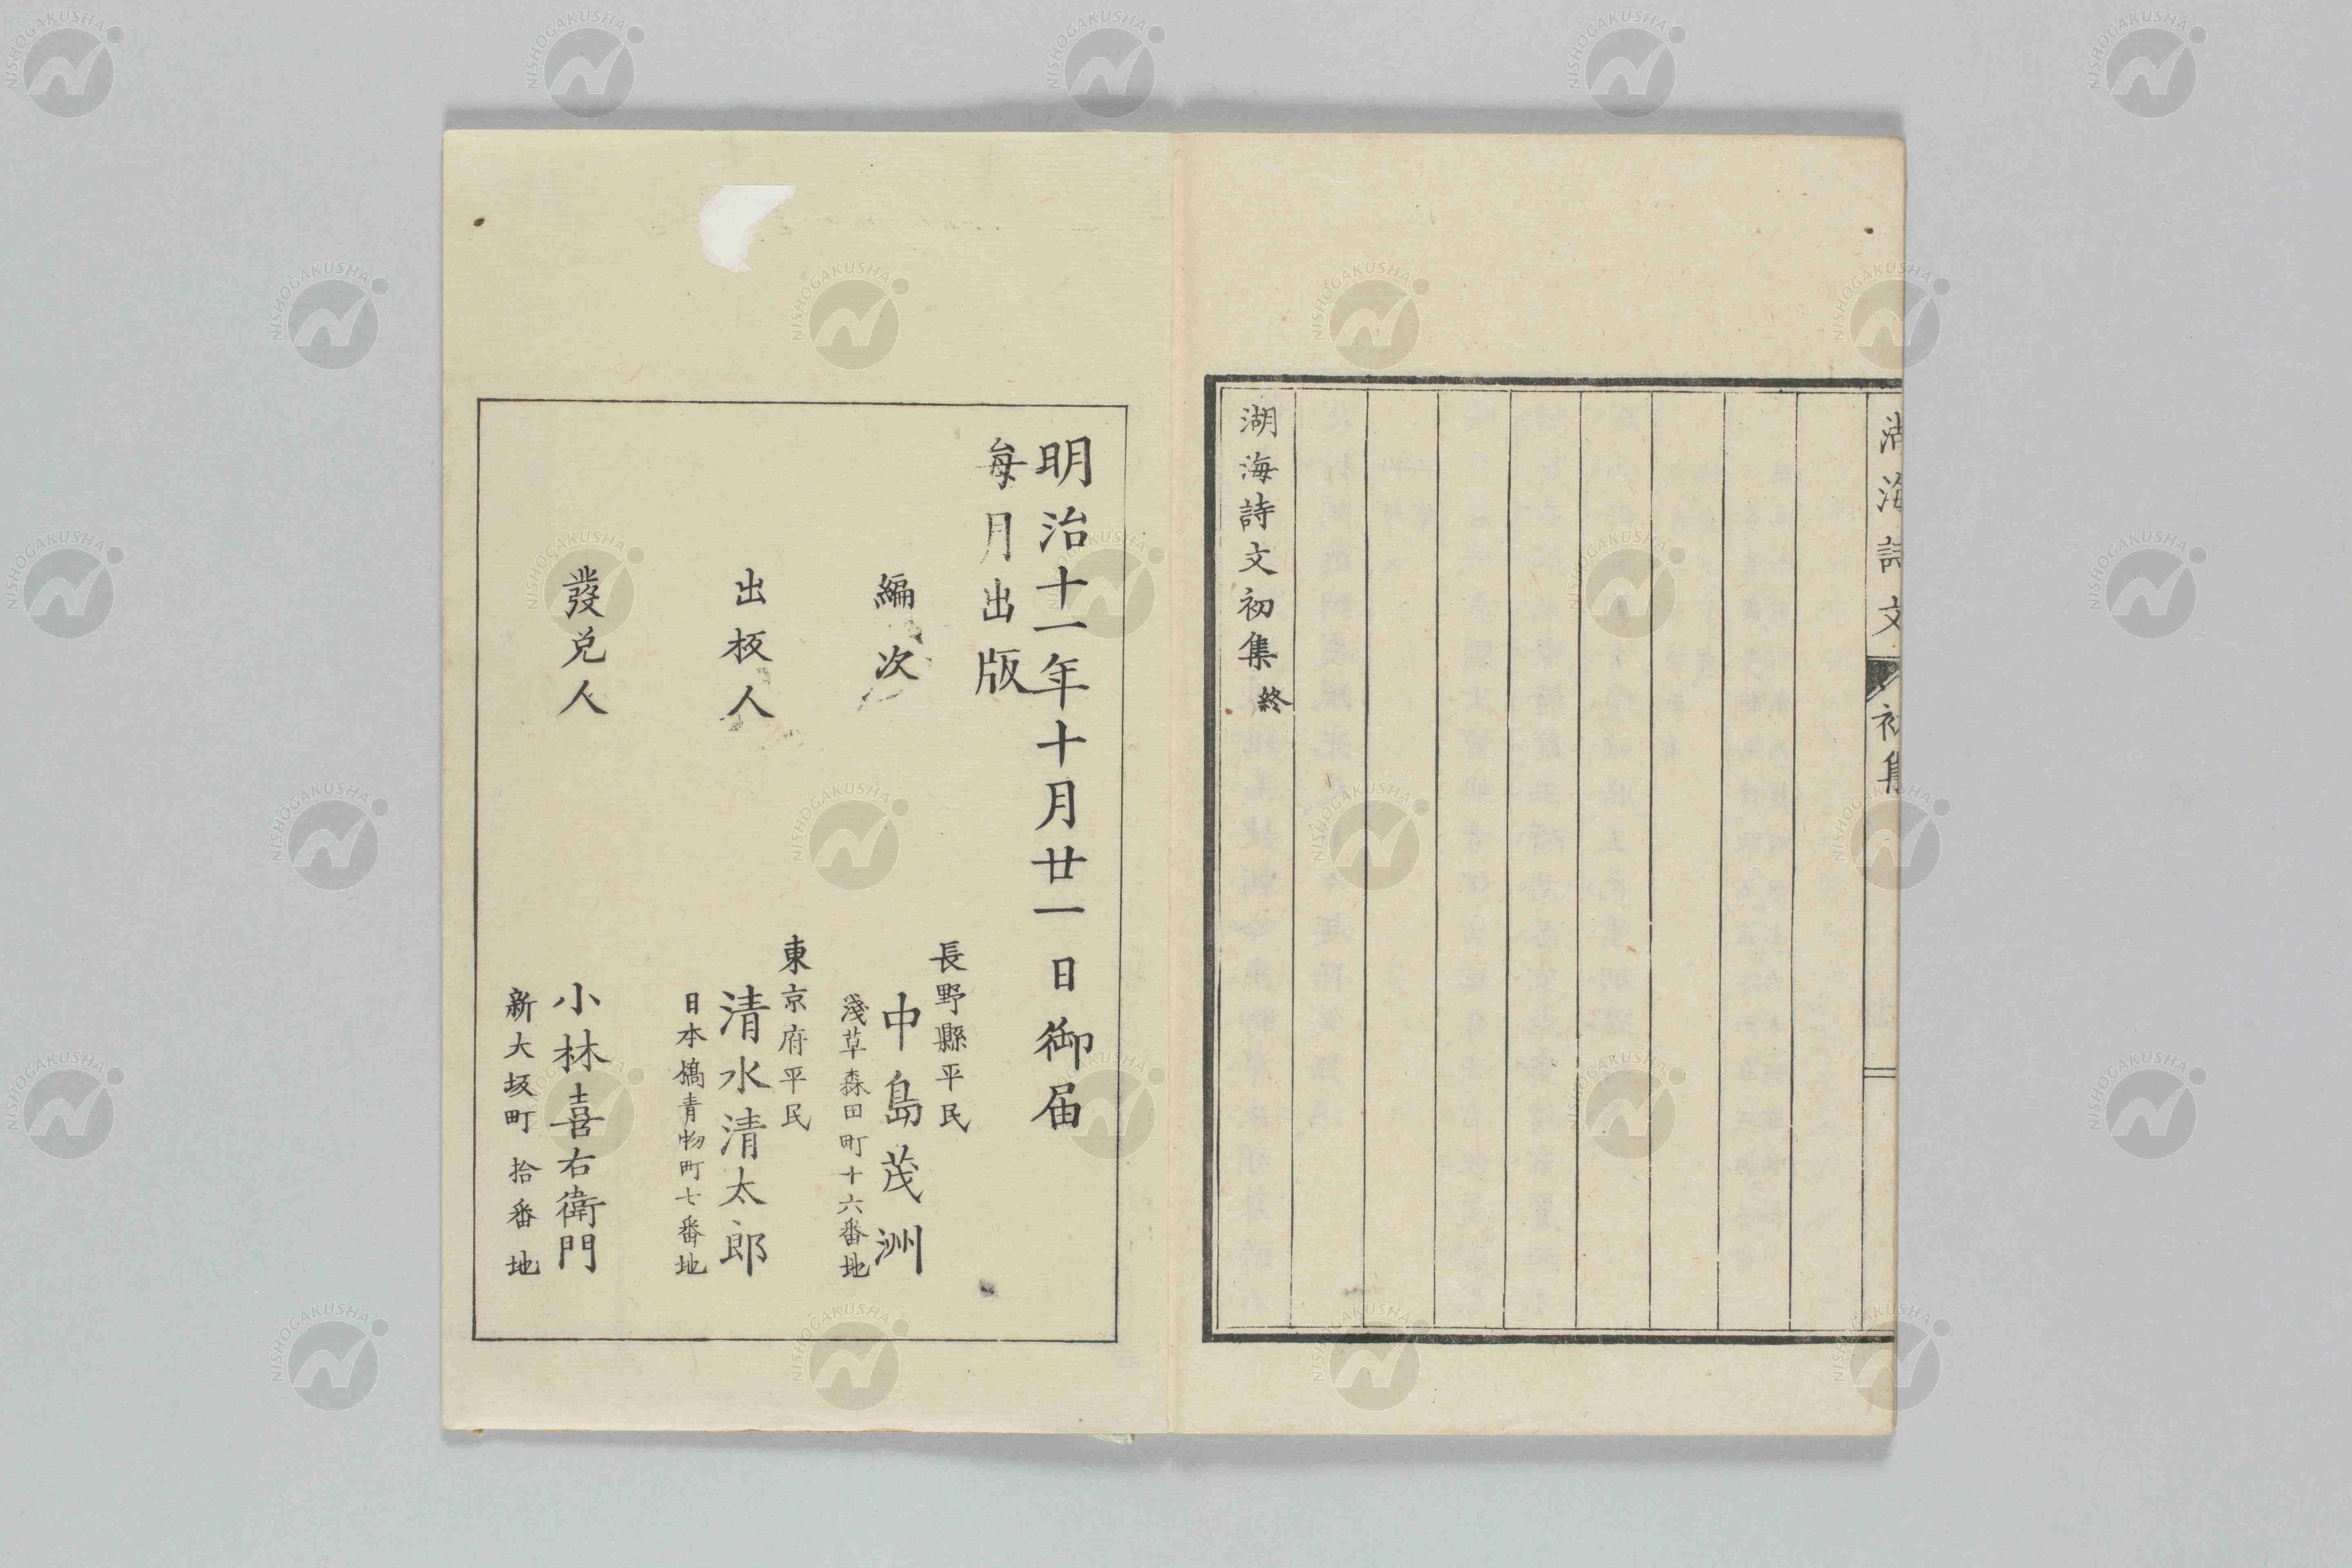 湖海詩文
初集
湖海詩文初集 終
明治十一年十月廿一日御届
毎月出版
編次
長野縣平民
中島茂洲
淺草森田町十六番地
出板人
東京府平民
清水清太郎
日本橋青物町七番地
發兌人
小林喜右衛門
新大坂町 拾番地
NISHOGAKUSHA